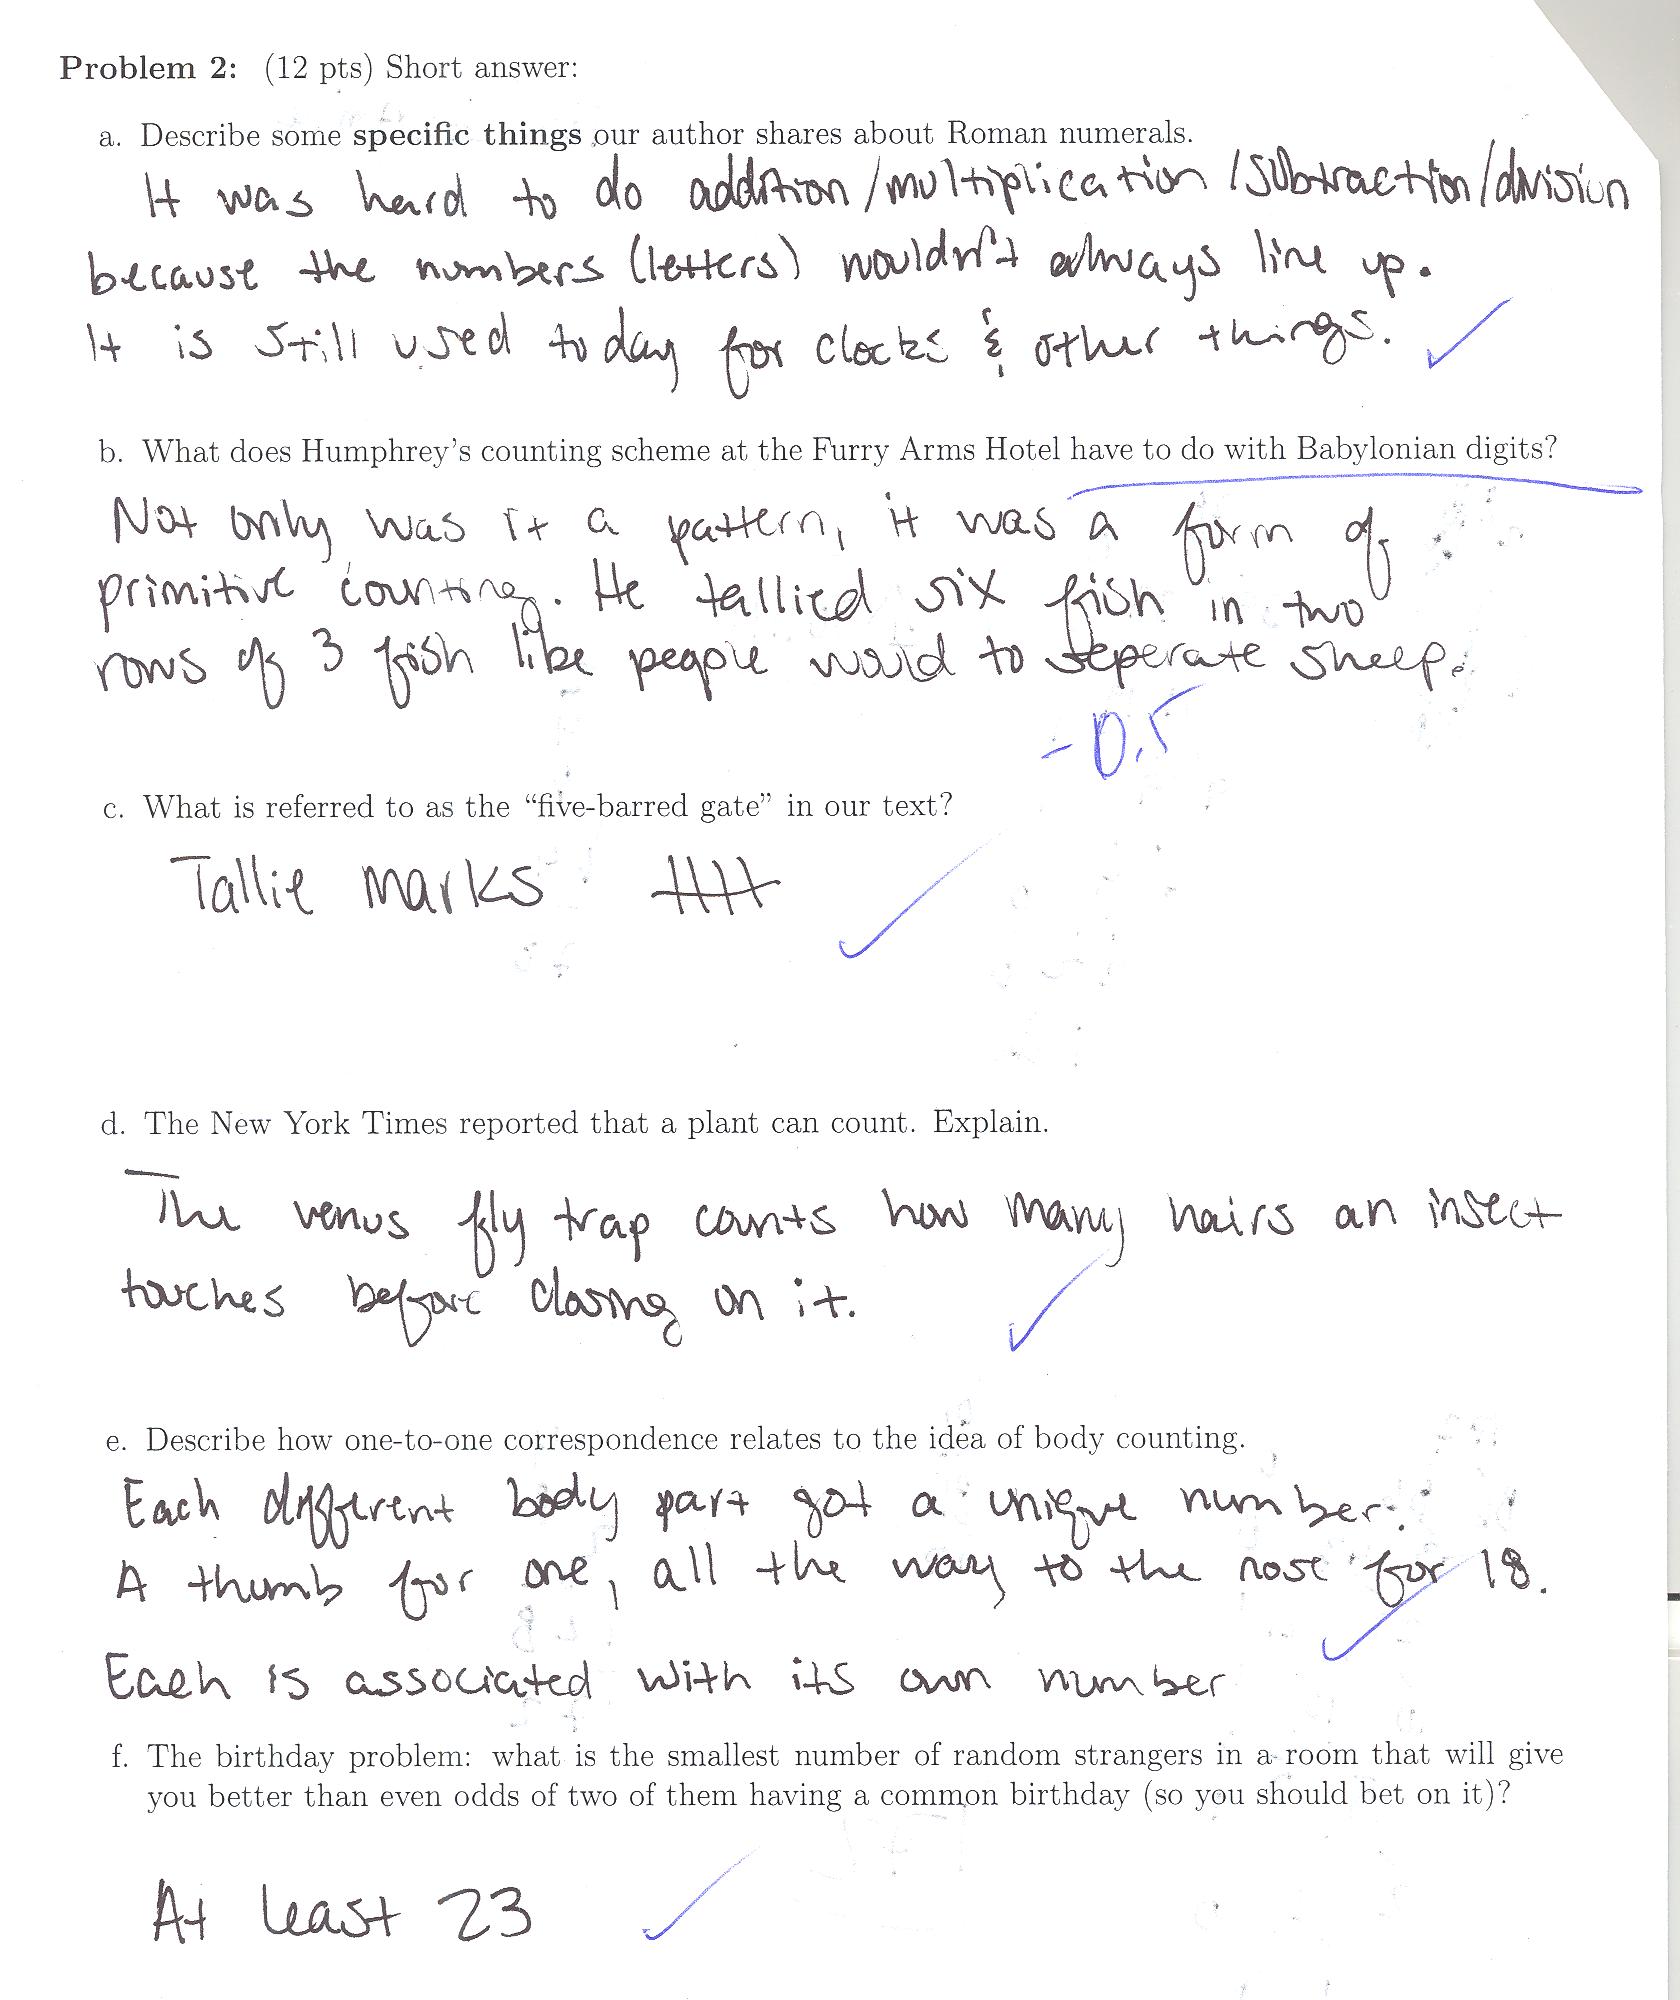 Problem 2: (12 pts) Short answer:
a. Describe some specific things our author shares about Roman numerals.
It was hard to do addition/multiplication/subtraction/division
because the numbers (letters) wouldn't always line up.
It is still used today for clocks & other things.
b. What does Humphrey's counting scheme at the Furry Arms Hotel have to do with Babylonian digits?
Not only was it a pattern, it was a form of
primitive counting. He tallied six fish in two
rows of 3 fish like people would to seperate sheep.
-0.5
c. What is referred to as the “five-barred gate” in our text?
Tallie marks
d. The New York Times reported that a plant can count. Explain.
The venus fly trap counts how many hairs an insect
touches before closing on it.
e. Describe how one-to-one correspondence relates to the idea of body counting.
Each different body part got a unique number.
A thumb for one, all the way to the nose for 18.
Each is associated with its own number
f. The birthday problem: what is the smallest number of random strangers in a room that will give
you better than even odds of two of them having a common birthday (so you should bet on it)?
At least 23